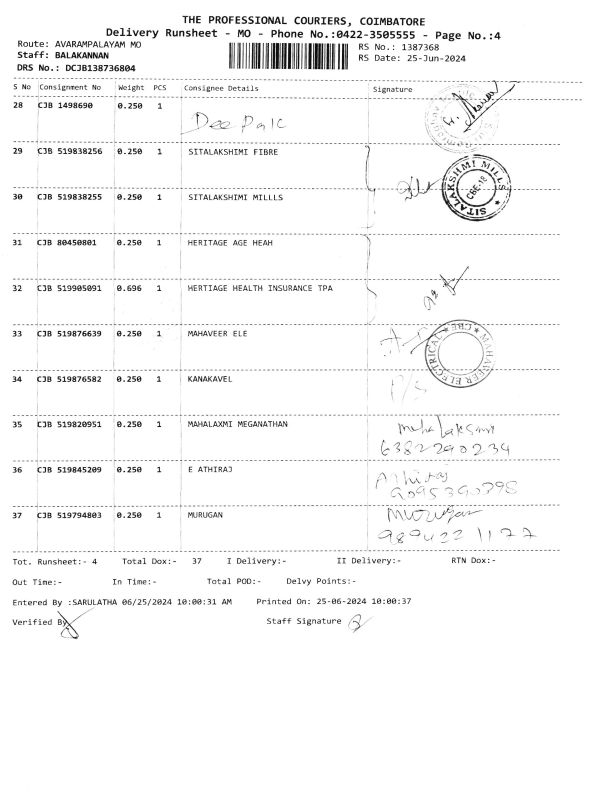 THE PROFESSIONAL COURIERS, COIMBATORE
Delivery Runsheet - MO - Phone No.:0422-3505555 - Page No.:4
Route: AVARAMPALAYAM MO
RS No.: 1387368
Staff: BALAKANNAN
RS Date: 25-Jun-2024
DRS No.: DCJB138736804
S No Consignment No Weight PCS Consignee Details Signature
28 CJB 1498690 0.250 1
Deepak
29 CJB 519838256 0.250 1 SITALAKSHIMI FIBRE
30 CJB 519838255 0.250 1 SITALAKSHIMI MILLLS
SITALAKSHMI MILLS
CBE-18
31 CJB 80450801 0.250 1 HERITAGE AGE HEAH
32 CJB 519905091 0.696 1 HERTIAGE HEALTH INSURANCE TPA
33 CJB 519876639 0.250 1 MAHAVEER ELE
MAHAVEER ELECTRICAL CBE
34 CJB 519876582 0.250 1 KANAKAVEL
P/S
35 CJB 519820951 0.250 1 MAHALAXMI MEGANATHAN
Mahalakshmi
6382290234
36 CJB 519845209 0.250 1 E ATHIRAJ
Athiraj
9095390798
37 CJB 519794803 0.250 1 MURUGAN
Murugan
9894221177
Tot. Runsheet:- 4 Total Dox:- 37 I Delivery:- II Delivery:- RTN Dox:-
Out Time:- In Time:- Total POD:- Delvy Points:-
Entered By :SARULATHA 06/25/2024 10:00:31 AM Printed On: 25-06-2024 10:00:37
Verified By
Staff Signature